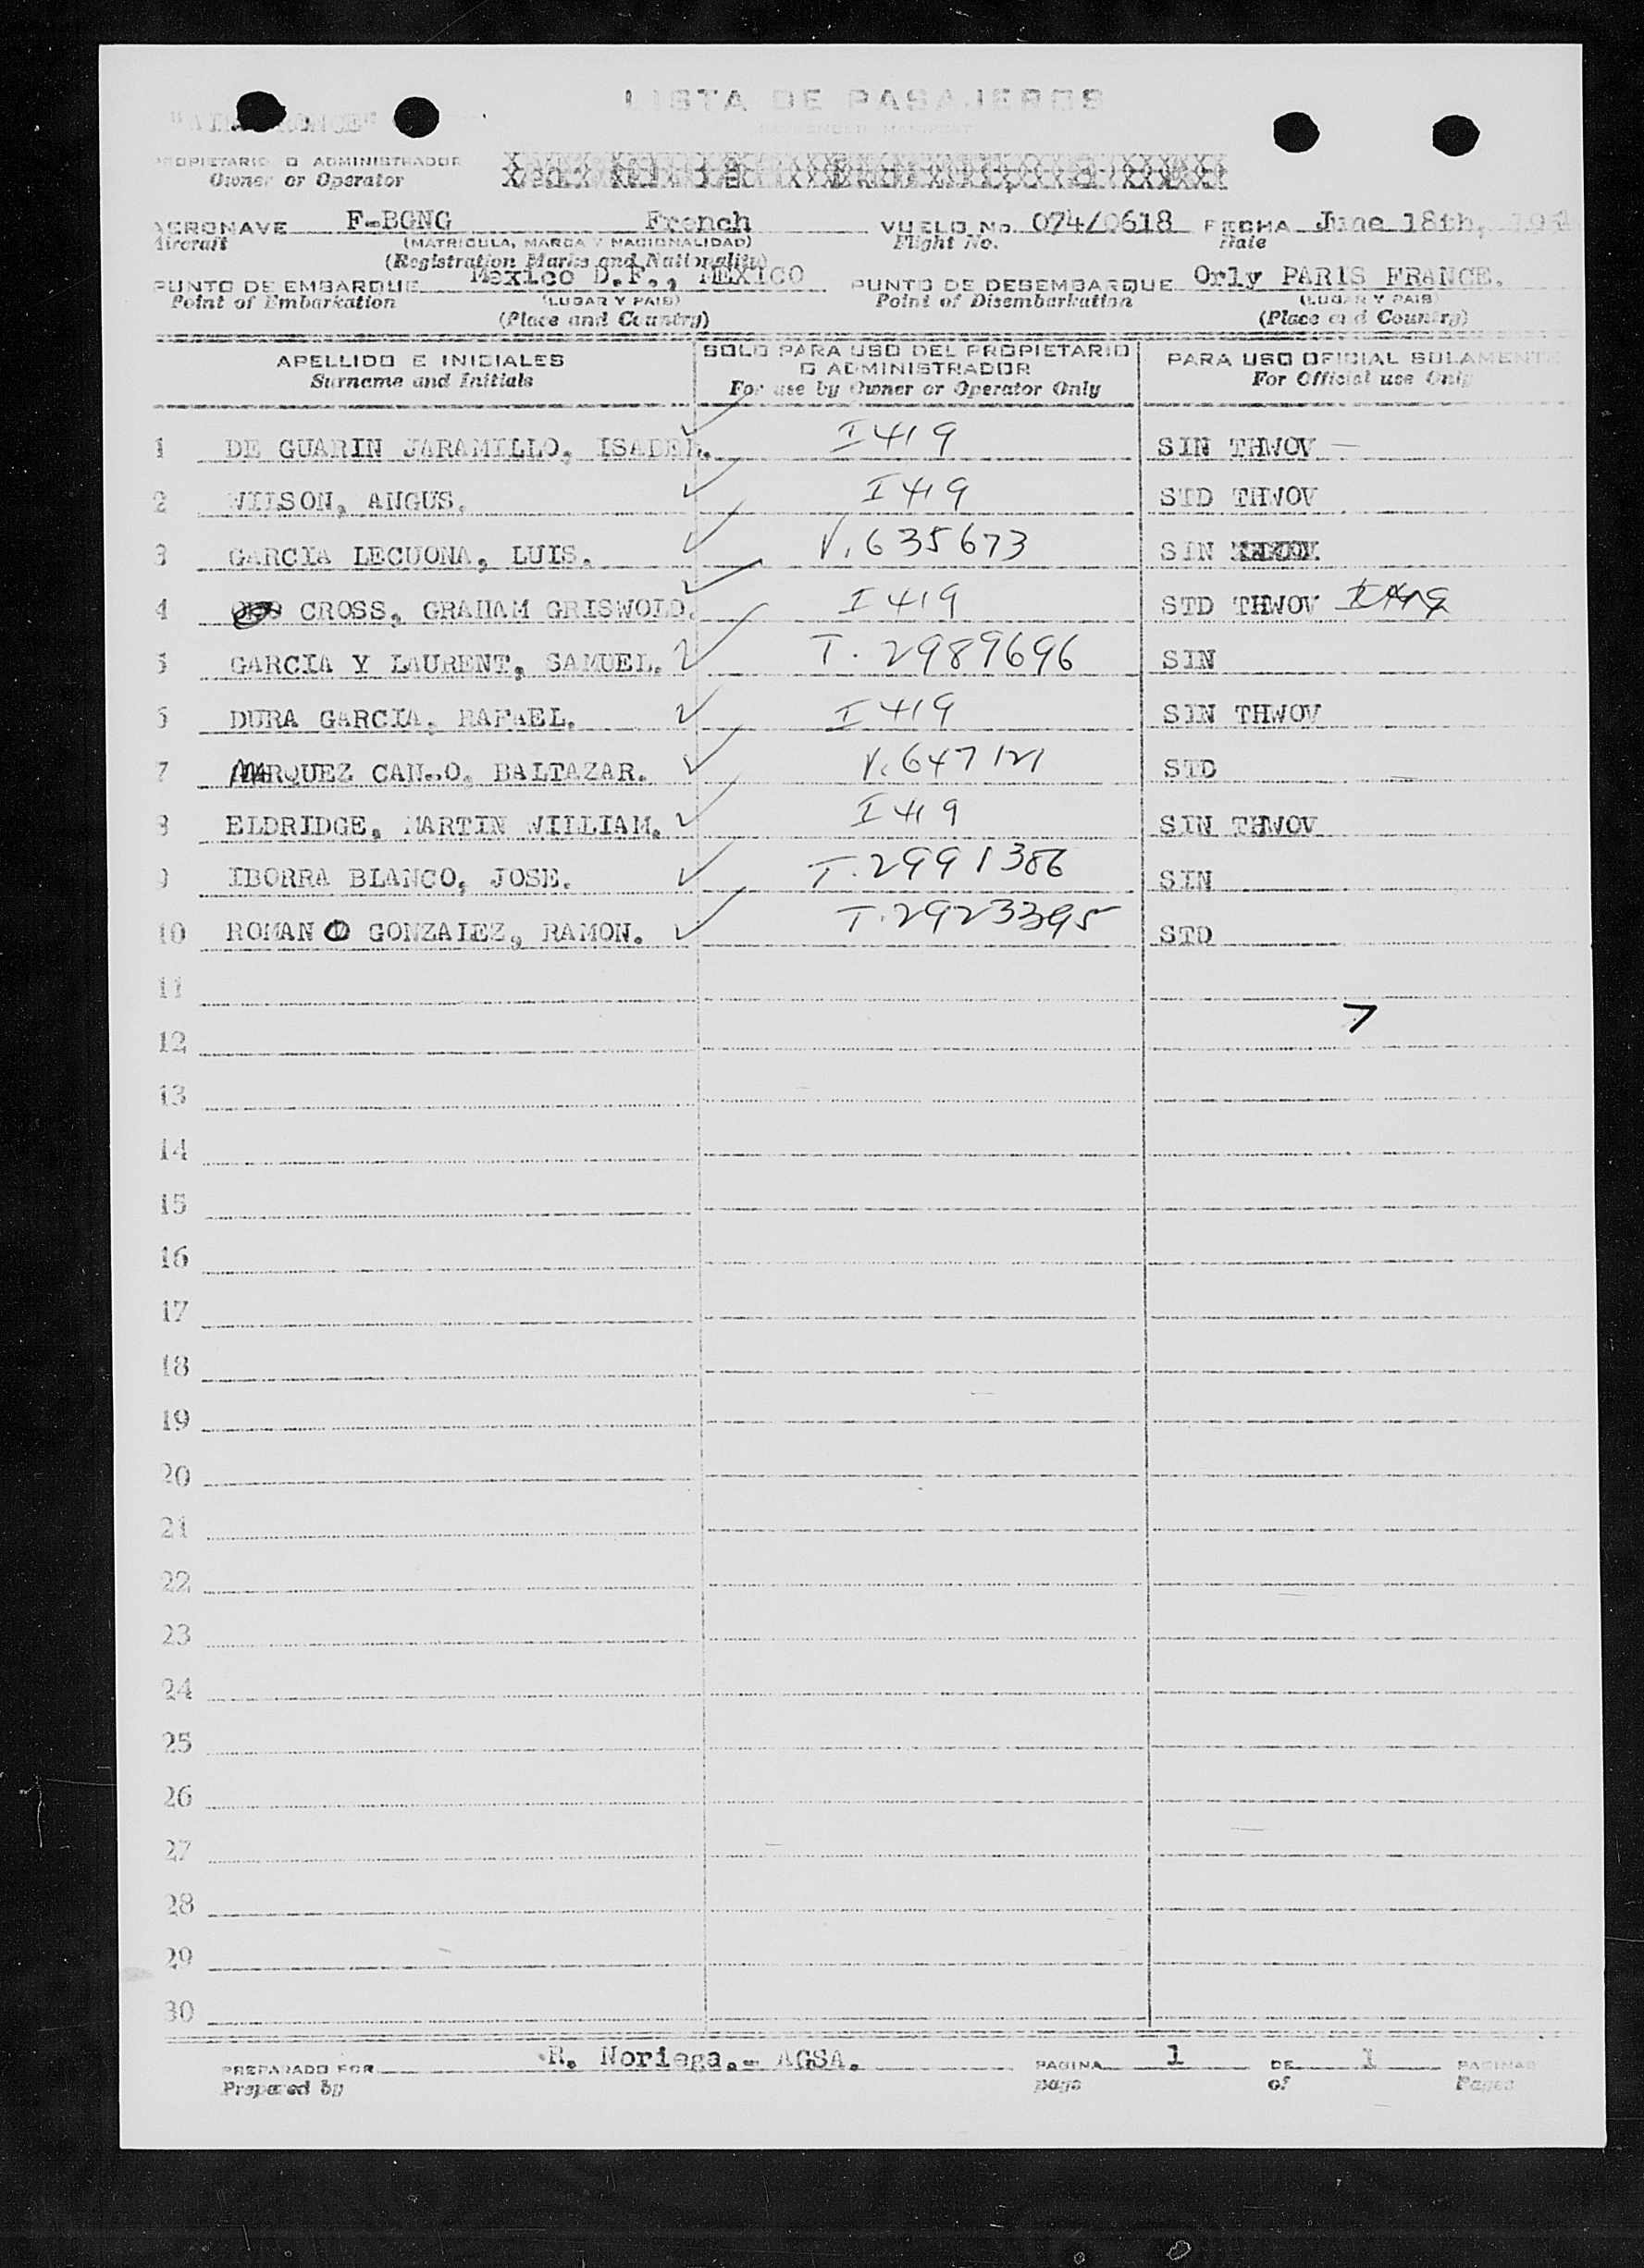 LISTA DE PASAJEROS
PASSENGER MANIFEST
PROPIETARIO O ADMINISTRADOR
Owner or Operator
AERONAVE F-BGNG French VUELO No. 074/0618 FECHA June 18th,
Aircraft (MATRICULA, MARCA Y NACIONALIDAD) Flight No. Date
(Registration Marks and Nationality)
PUNTO DE EMBARQUE Mexico D.F., MEXICO PUNTO DE DESEMBARQUE Orly PARIS FRANCE.
Point of Embarkation (LUGAR Y PAIS) Point of Disembarkation (LUGAR Y PAIS)
(Place and Country) (Place and Country)
APELLIDO E INICIALES SOLO PARA USO DEL PROPIETARIO O ADMINISTRADOR PARA USO OFICIAL SOLAMENTE
Surname and Initials For use by Owner or Operator Only For Official use Only
1 DE GUARIN JARAMILLO, ISABEL. I 419 SIN THWOV
2 WILSON, ANGUS. I 419 STD THWOV
3 GARCIA LECUONA, LUIS. V. 635673 SIN
4 CROSS, GRAHAM GRISWOLD. I 419 STD THWOV I 419
5 GARCIA Y LAURENT, SAMUEL. T. 2989696 SIN
6 DURA GARCIA, RAFAEL. I 419 SIN THWOV
7 MARQUEZ BALTAZAR. V. 647121 STD
8 ELDRIDGE, MARTIN WILLIAM. I 419 SIN THWOV
9 IBORRA BLANCO, JOSE. T. 2991386 SIN
10 ROMAN GONZALEZ, RAMON. T. 2923395 STD
11
12
13
14
15
16
17
18
19
20
21
22
23
24
25
26
27
28
29
30
PREPARADO POR R. Noriega.- AGSA. PAGINA 1 DE 1 PAGINAS
Prepared by page of Pages